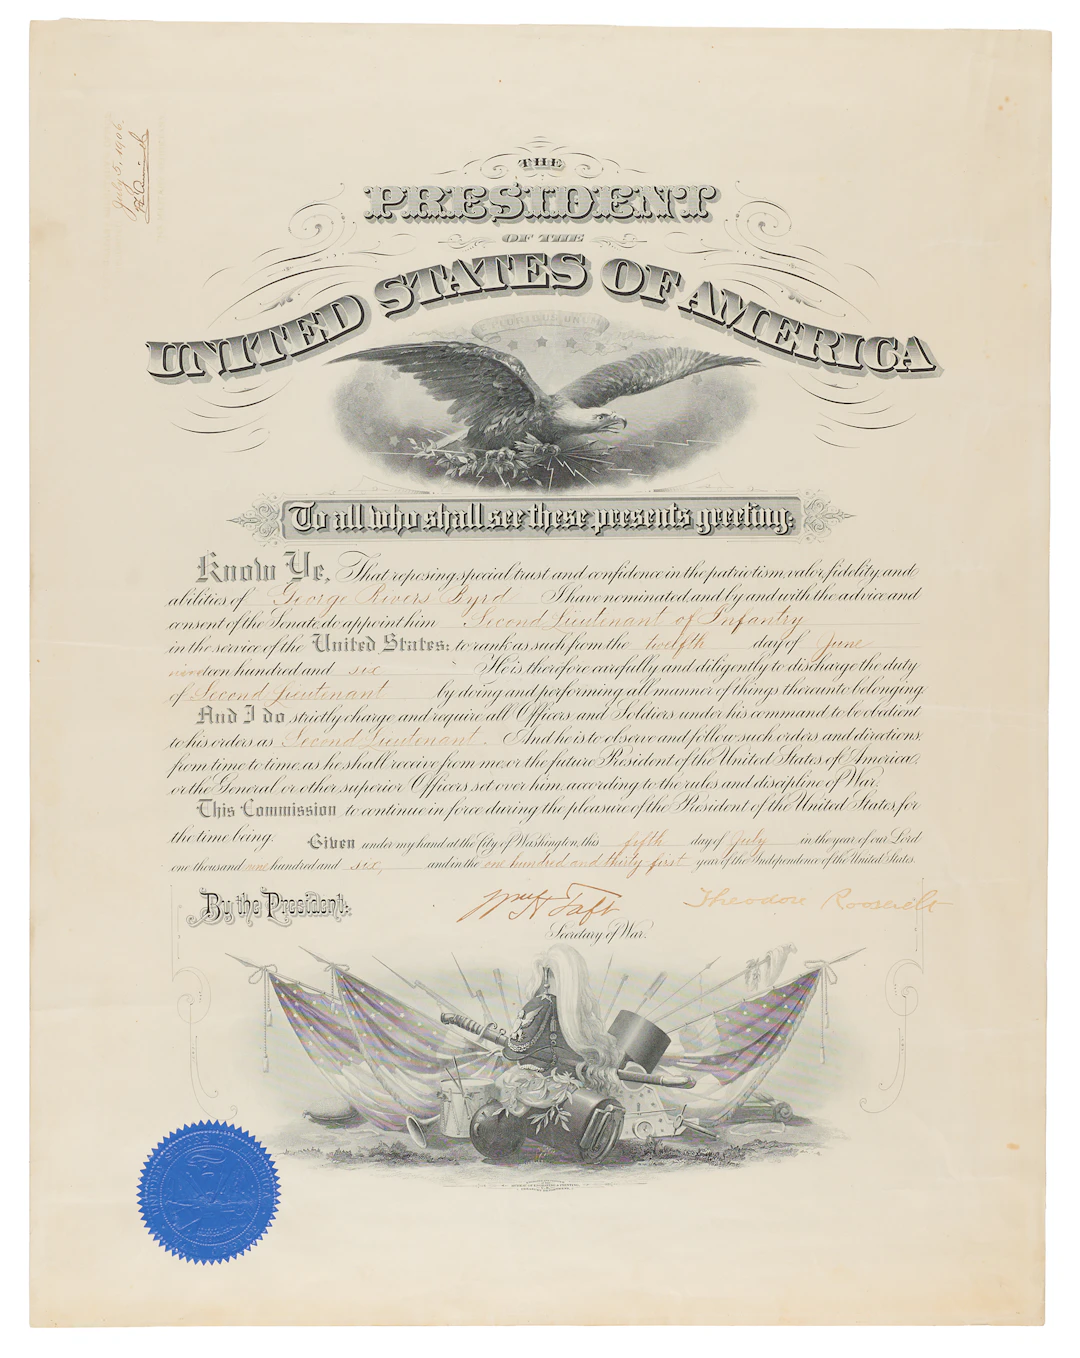 July 5, 1906.
THE
PRESIDENT
OF THE
UNITED STATES OF AMERICA
E PLURIBUS UNUM
To all who shall see these presents greeting:
Know Ye, That reposing special trust and confidence in the patriotism, valor, fidelity and
abilities of George Rivers Byrd I have nominated, and by and with the advice and
consent of the Senate, do appoint him Second Lieutenant of Infantry
in the service of the United States: to rank as such from the twelfth day of June
nineteen hundred and six He is therefore carefully and diligently to discharge the duty
of Second Lieutenant by doing and performing all manner of things thereunto belonging.
And I do strictly charge and require all Officers and Soldiers under his command to be obedient
to his orders as Second Lieutenant. And he is to observe and follow such orders and directions,
from time to time, as he shall receive from me, or the future President of the United States of America,
or the General or other superior Officers set over him, according to the rules and discipline of War.
This Commission to continue in force during the pleasure of the President of the United States, for
the time being.
Given under my hand at the City of Washington, this fifth day of July in the year of our Lord
one thousand nine hundred and six, and in the one hundred and thirty first year of the Independence of the United States.
By the President:
Wm H Taft
Theodore Roosevelt
Secretary of War.